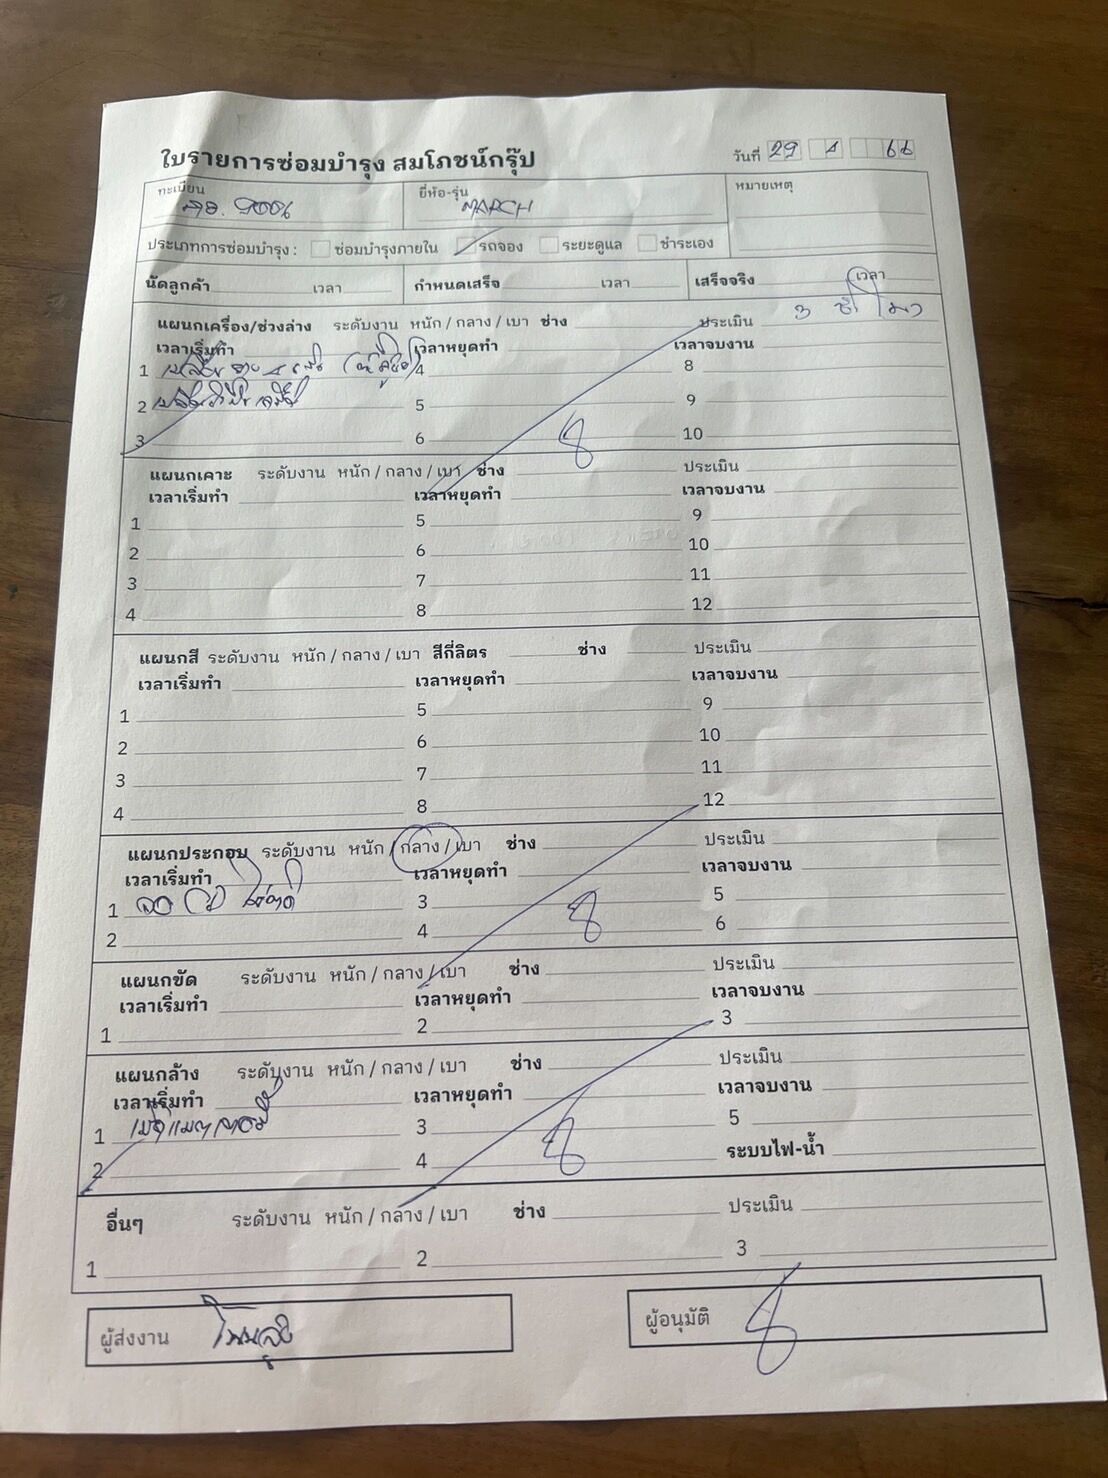 ใบรายการซ่อมบำรุง สมโภชน์กรุ๊ป
วันที่ 29 4 66
ทะเบียน
ยี่ห้อ-รุ่น MARCH
หมายเหตุ
ประเภทการซ่อมบำรุง : ซ่อมบำรุงภายใน รถจอง ระยะดูแล ชำระเอง
นัดลูกค้า เวลา กำหนดเสร็จ เวลา เสร็จจริง เวลา
แผนกเครื่อง/ช่วงล่าง ระดับงาน หนัก / กลาง / เบา ช่าง ประเมิน 3
เวลาเริ่มทำ เวลาหยุดทำ เวลาจบงาน
1 4 8
2 5 9
3 6 10
แผนกเคาะ ระดับงาน หนัก / กลาง / เบา ช่าง ประเมิน
เวลาเริ่มทำ เวลาหยุดทำ เวลาจบงาน
1 5 9
2 6 10
3 7 11
4 8 12
แผนกสี ระดับงาน หนัก / กลาง / เบา สีกี่ลิตร ช่าง ประเมิน
เวลาเริ่มทำ เวลาหยุดทำ เวลาจบงาน
1 5 9
2 6 10
3 7 11
4 8 12
แผนกประกอบ ระดับงาน หนัก / กลาง / เบา ช่าง ประเมิน
เวลาเริ่มทำ เวลาหยุดทำ เวลาจบงาน
1 3 5
2 4 6
แผนกขัด ระดับงาน หนัก / กลาง / เบา ช่าง ประเมิน
เวลาเริ่มทำ เวลาหยุดทำ เวลาจบงาน
1 2 3
แผนกล้าง ระดับงาน หนัก / กลาง / เบา ช่าง ประเมิน
เวลาเริ่มทำ เวลาหยุดทำ เวลาจบงาน
1 3 5
2 4 ระบบไฟ-น้ำ
อื่นๆ ระดับงาน หนัก / กลาง / เบา ช่าง ประเมิน
1 2 3
ผู้ส่งงาน
ผู้อนุมัติ